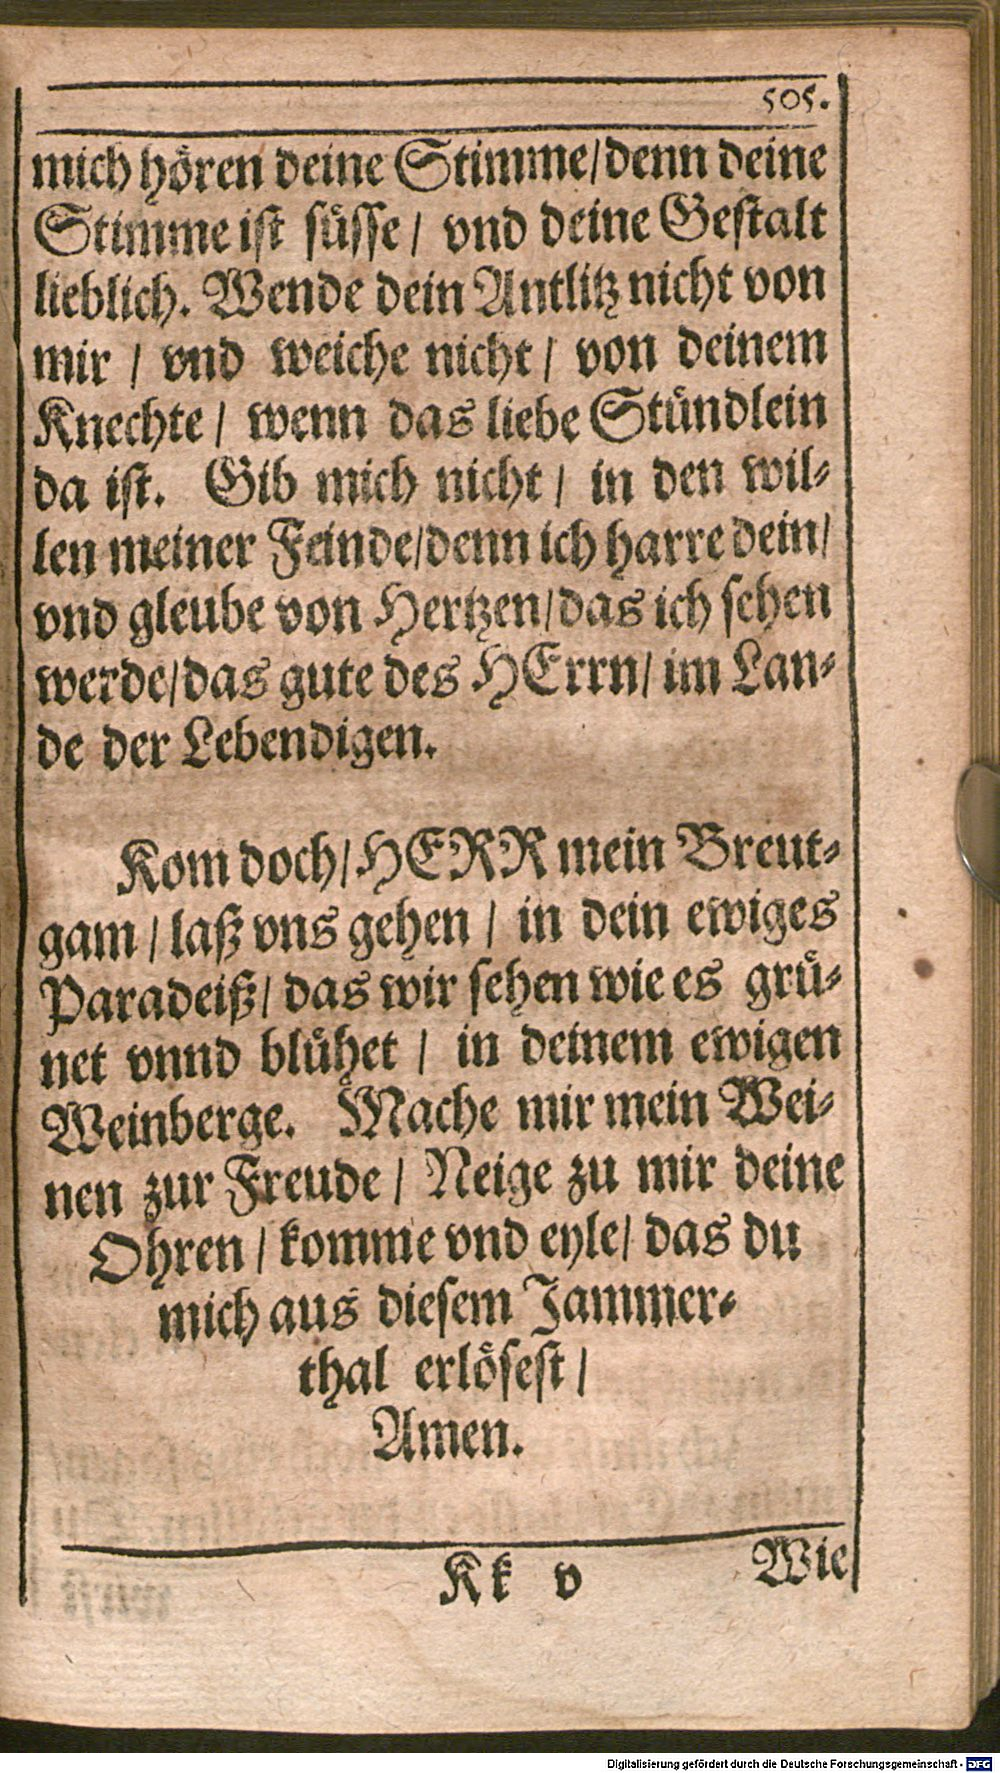 505.
mich hören deine Stimme/denn deine
Stimme ist süsse / vnd deine Gestalt
lieblich. Wende dein Antlitz nicht von
mir / vnd weiche nicht / von deinem
Knechte / wenn das liebe Stündlein
da ist. Gib mich nicht / in den wil-
len meiner Feinde/denn ich harre dein/
vnd gleube von Hertzen/das ich sehen
werde/das gute des HErrn/ im Lan-
de der Lebendigen.
Kom doch/HERR mein Breut-
gam / laß vns gehen / in dein ewiges
Paradeiß/ das wir sehen wie es grü-
net vnnd blühet / in deinem ewigen
Weinberge. Mache mir mein Wei-
nen zur Freude / Neige zu mir deine
Ohren / komme vnd eyle/ das du
mich aus diesem Jammer-
thal erlösest /
Amen.
Kk v
Wie
Digitalisierung gefördert durch die Deutsche Forschungsgemeinschaft - DFG